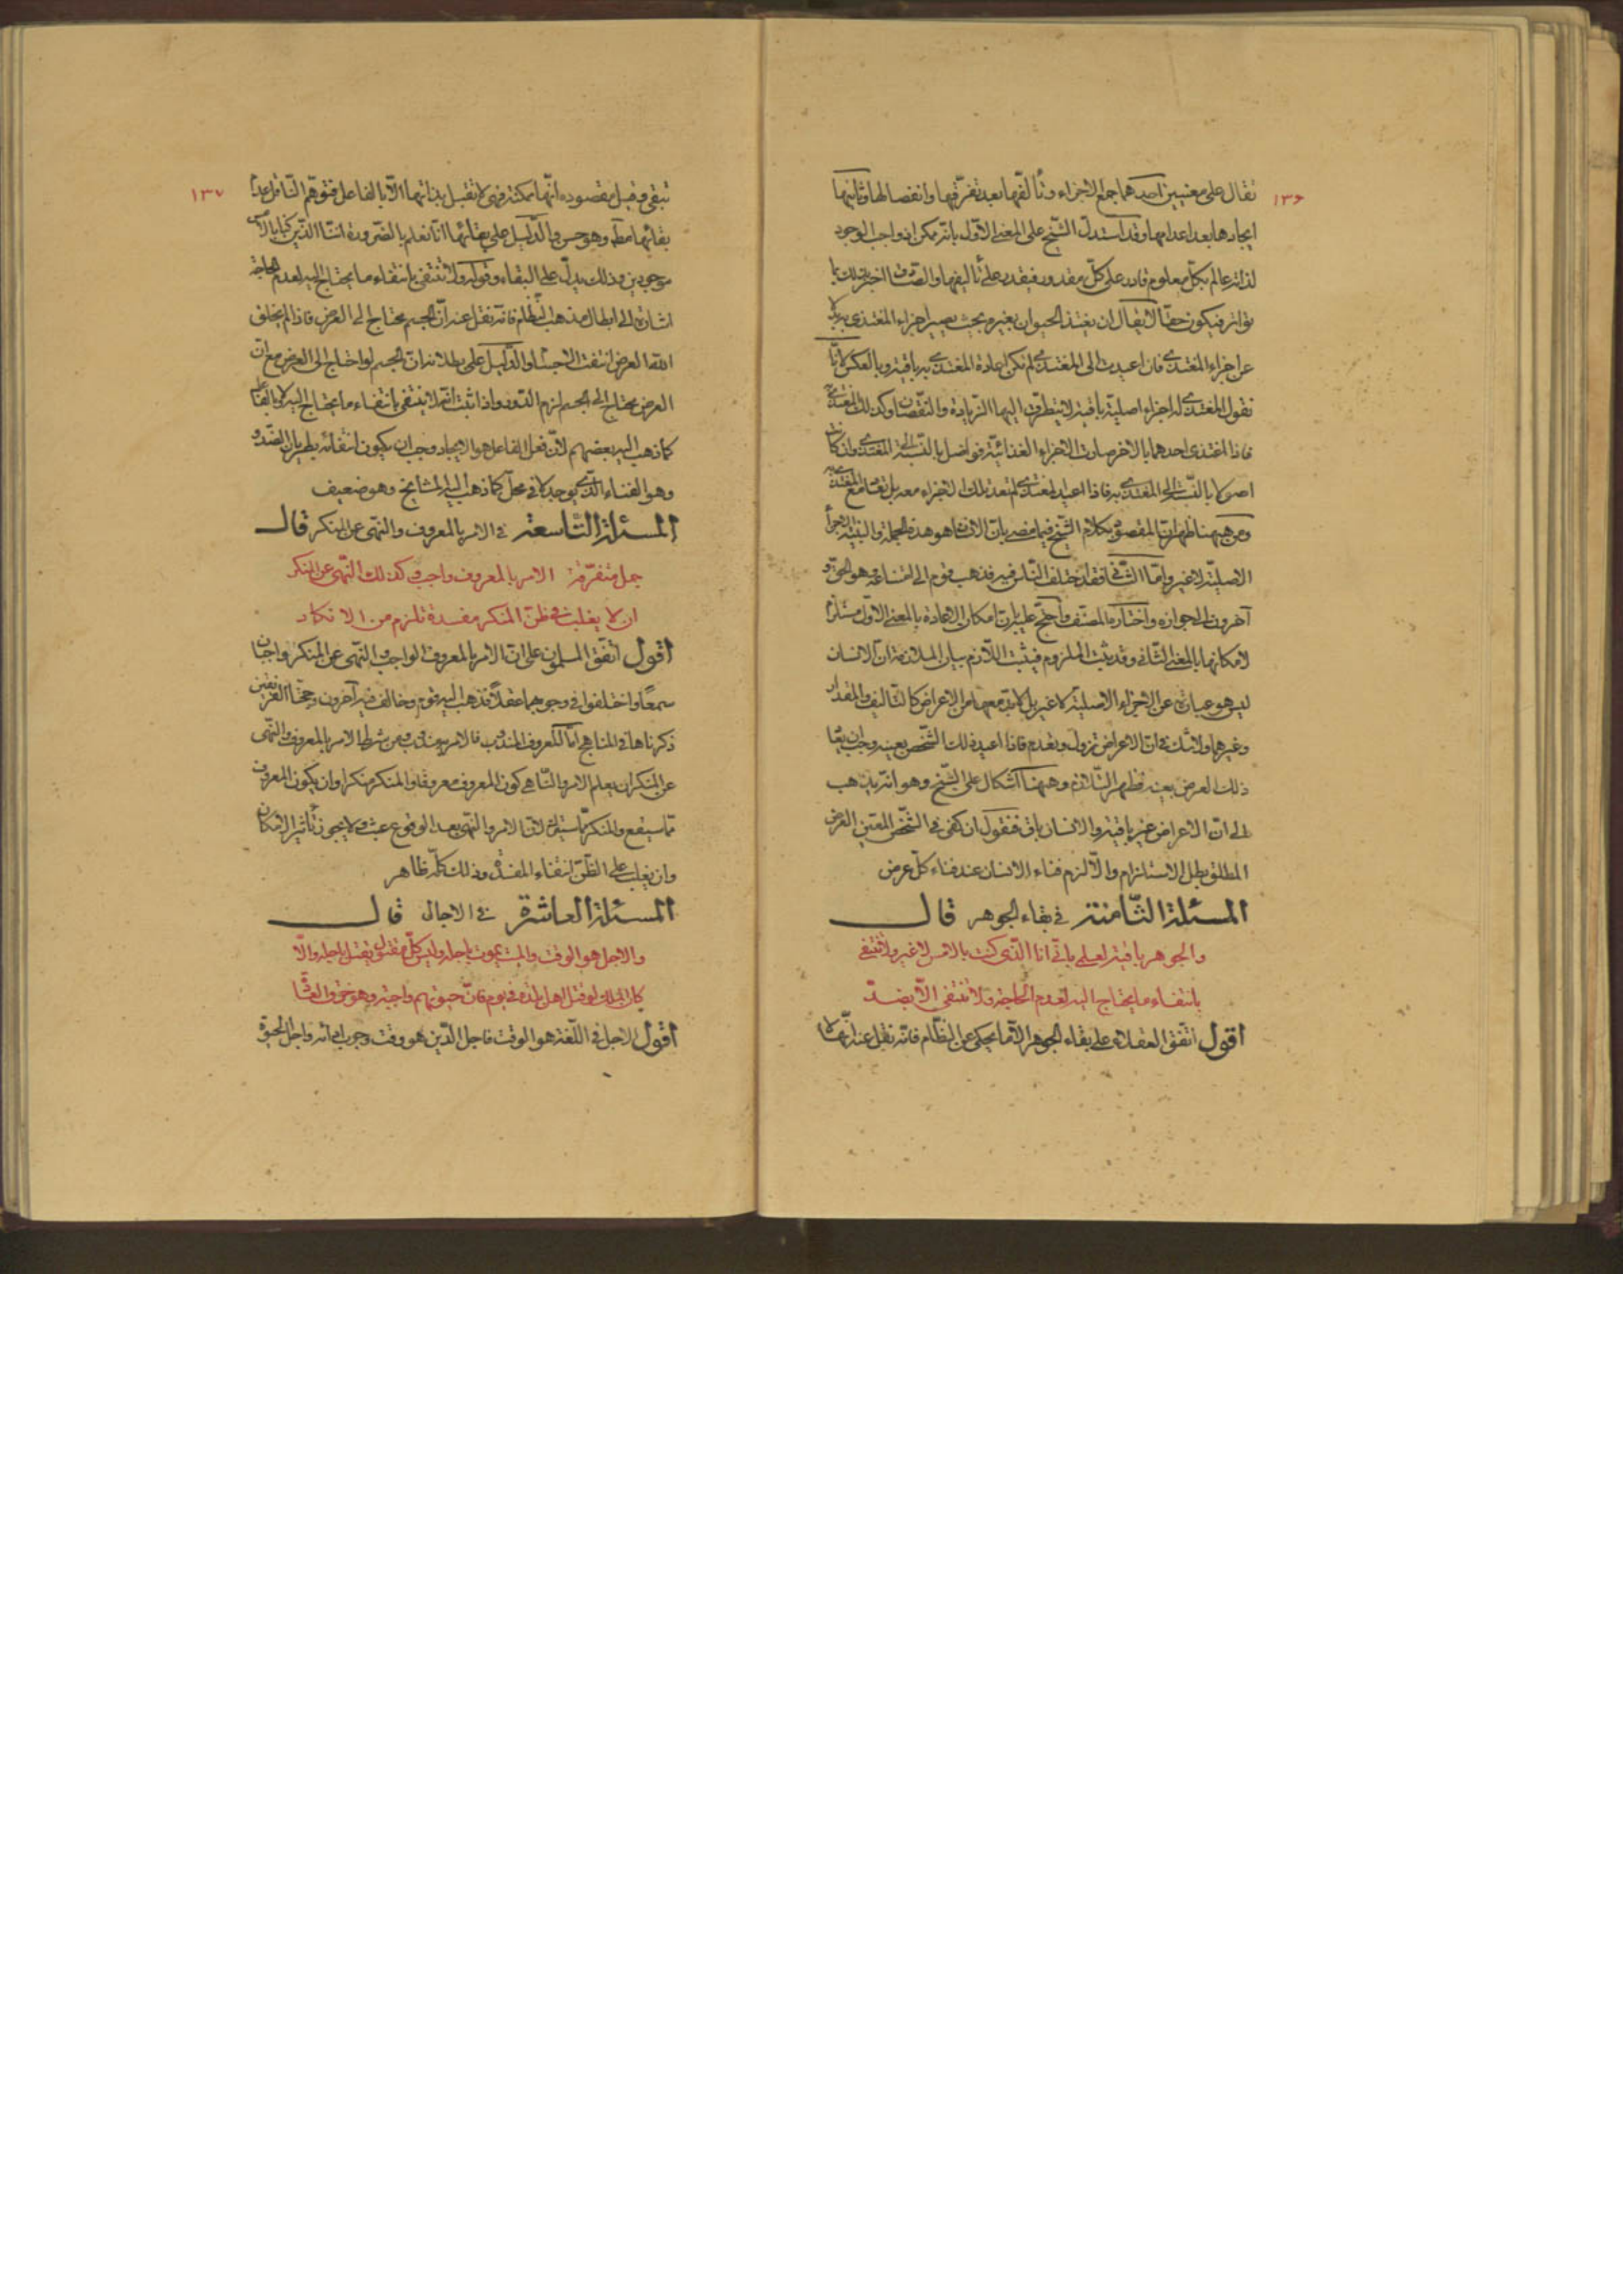 ١٣۶
تقال على معنيين احدهما جمع الاجزاء وتألفها بعد تفرقها وانفصالها وثانيهما
ايجادها بعد اعدامها وقد استدل الشيخ على المعنى الاول بانه ممكن اذ واجب الوجود
لذاته عالم بكل معلوم قادر على كل مقدور فيقدر على تأليفها والصادق اخبر بذلك بما
تواتر فيكون حقا لا يقال ان يغتذ الحيوان بغيره بحيث يصير اجزاء المغتذى به بدلا
عن اجزاء المغتذى فان اعيدت الى المغتذى لم تكن اعادة المغتذى به باقية وبالعكس لانا
نقول المغتذى له اجزاء اصلية باقية لا يتطرق اليها الزيادة والنقصان وكذلك المغتذى به
فاذا اغتذى احدهما بالاخر صارت الاجزاء الغذائية فواضل بالنسبة الى المغتذى وان كانت
اصولا بالنسبة الى المغتذى به فاذا اعيد المغتذى لم تعد تلك الاجزاء معه بل تعاد مع المغتذى به
ومن هيهنا ظهر ان المقصود بكلام الشيخ فيما مضى بان الانسان هو هذه الجملة والبنية الاجزاء
الاصلية لا غير واما الثانى فقد اختلف الناس فيه فذهب قوم الى امتناعه وهو الحق و
آخرون الى جوازه واختاره المصنف واحتج عليه بان امكان الاعادة بالمعنى الاول مستلزم
لامكانها بالمعنى الثانى وقد ثبت الملزوم فيثبت اللازم بيان الملازمة ان الانسان
ليس هو عبارة عن الاجزاء الاصلية لا غير بل لابد معها من الاعراض كالتأليف والمقدار
وغيرهما ولا شك فى ان الاعراض تزول وتعدم فاذا اعيد ذلك الشخص بعينه وجب ان يعاد
ذلك العرض بعينه فظهر التلازم وهيهنا اشكال على الشيخ وهو انه يذهب
الى ان الاعراض غير باقية والانسان باق فنقول ان كفى فى الشخص المعين العرض
المطلق بطل الاستلزام والا لزم فناء الانسان عند فناء كل عرض
المسئلة الثامنة فى بقاء الجوهر قال
والجوهر باقية لعلمى بانى انا الذى كنت بالامس لا غير ولا تنتفى
بانتفاء ما يحتاج اليه لعدم الحاجة فلا تنتفى الا بضد
اقول اتفق العقلاء على بقاء الجوهر الا ما يحكى عن النظام فانه نقل عنه انها لا
١٣٧
تبقى وقيل مقصوده انها ممكنة فهى لا تقبل بذاتها الا بالفاعل فتوهم الناقل عدم
بقائها مطلقا وهو حسن والدليل على بقائها انا نعلم بالضرورة اننا الذين كنا بالامس
موجودين وذلك يدل على البقاء وقوله ولا تنتفى بانتفاء ما يحتاج اليه لعدم الحاجة
اشارة الى ابطال مذهب النظام فانه نقل عنه ان الجسم يحتاج الى العرض فاذا لم يخلق
الله العرض انتفت الاجسام والدليل على بطلانه ان الجسم لو احتاج الى العرض مع ان
العرض يحتاج الى الجسم لزم الدور واذا ثبت انه لا ينتفى بانتفاء ما يحتاج اليه لا بالفاعل
كما ذهب اليه بعضهم لان فعل الفاعل هو الايجاد وجب ان يكون انتفائه بطريان الضد و
وهو الفناء الذى يوجد لا فى محل كما ذهب اليه المشايخ وهو ضعيف
المسئلة التاسعة فى الامر بالمعروف والنهى عن المنكر قال
جمل متفرقة الامر بالمعروف واجب وكذلك النهى عن المنكر
ان لا يغلب فى ظن المنكر مفسدة تلزم من الانكار
اقول اتفق المسلمون على ان الامر بالمعروف الواجب والنهى عن المنكر واجبان
سمعا واختلفوا فى وجوبهما عقلا فذهب اليه قوم وخالف فيه آخرون وحجتا الفريقين
ذكرناها فى المناهج اما المعروف المندوب فالامر به مندوب ومن شرط الامر بالمعروف والنهى
عن المنكر ان يعلم الامر والناهى كون المعروف معروفا والمنكر منكرا وان يكون المعروف
مما سيقع والمنكر مما سيترك لان الامر والنهى بعد الوقوع عبث ولا يجوز تأثير الامكان
وان يغلب على الظن انتفاء المفسدة وذلك كله ظاهر
المسئلة العاشرة فى الاجال قال
والاجل هو الوقت والميت يموت باجله وليس كل مقتول يقتل باجله والا
كان الملك لو قتل اهل بلدة فى يوم فان حيوتهم واجبة وهو خرق العادة
اقول الاجل فى اللغة هو الوقت فاجل الدين هو وقت وجوب ادائه واجل الحيوة